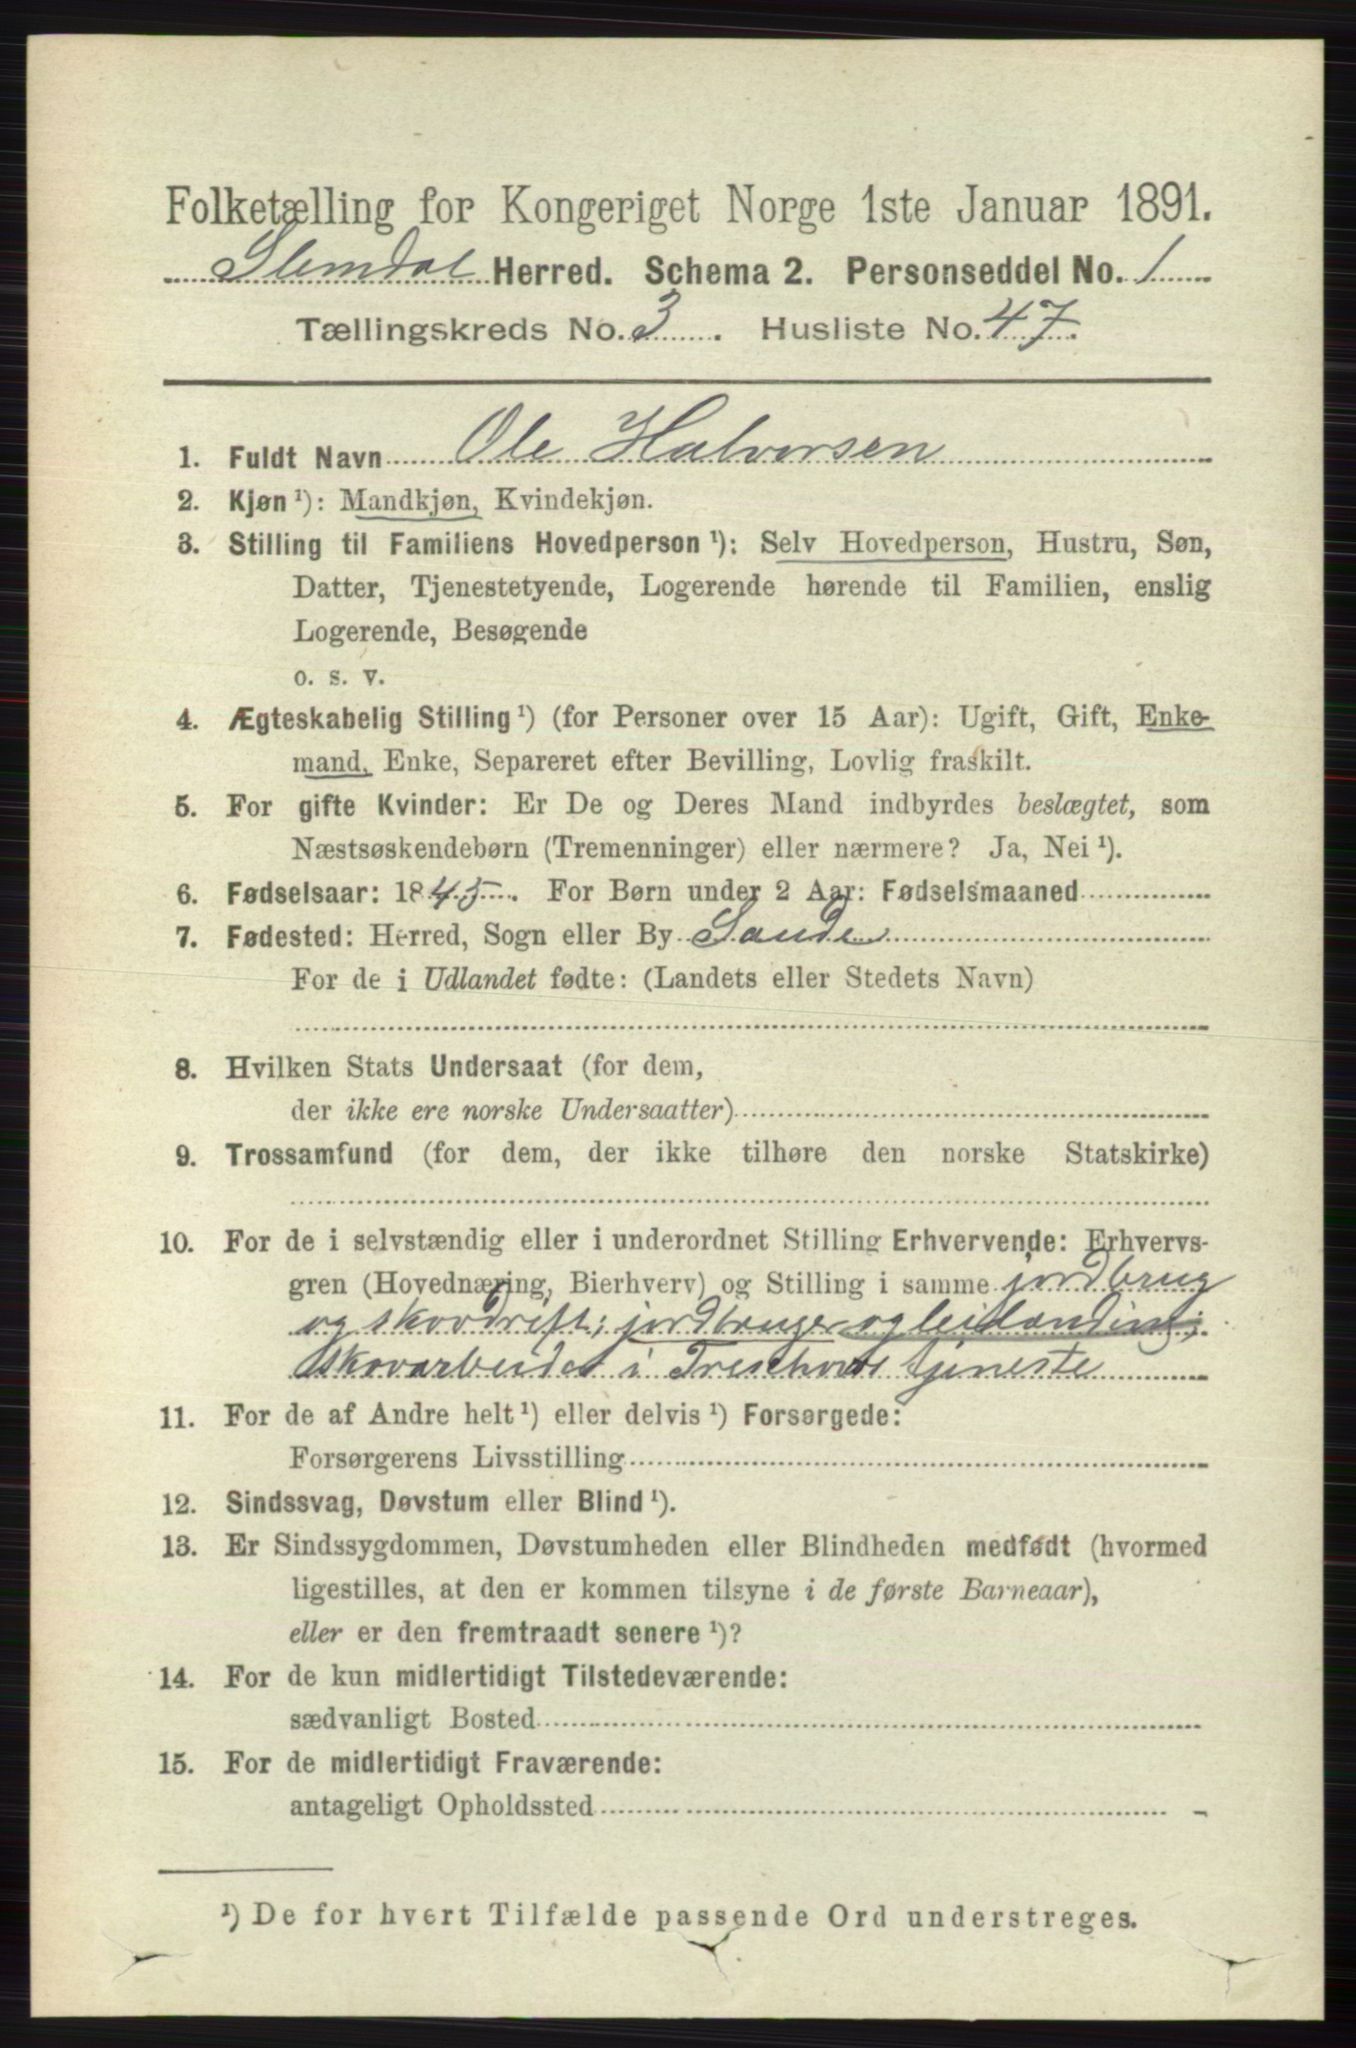 Folketælling for Kongeriget Norge 1ste Januar 1891.
Slemdal Herred. Schema 2. Personseddel No. 1
Tællingskreds No. 3. Husliste No. 47.
1. Fuldt Navn Ole Halvorsen
2. Kjøn ¹): Mandkjøn, Kvindekjøn.
3. Stilling til Familiens Hovedperson ¹): Selv Hovedperson, Hustru, Søn,
Datter, Tjenestetyende, Logerende hørende til Familien, enslig
Logerende, Besøgende
o. s. v.
4. Ægteskabelig Stilling ¹) (for Personer over 15 Aar): Ugift, Gift, Enke-
mand, Enke, Separeret efter Bevilling, Lovlig fraskilt.
5. For gifte Kvinder: Er De og Deres Mand indbyrdes beslægtet, som
Næstsøskendebørn (Tremenninger) eller nærmere? Ja, Nei ¹).
6. Fødselsaar: 1845. For Børn under 2 Aar: Fødselsmaaned
7. Fødested: Herred, Sogn eller By Sande
For de i Udlandet fødte: (Landets eller Stedets Navn)
8. Hvilken Stats Undersaat (for dem,
der ikke ere norske Undersaatter)
9. Trossamfund (for dem, der ikke tilhøre den norske Statskirke)
10. For de i selvstændig eller i underordnet Stilling Erhvervende: Erhvervs-
gren (Hovednæring, Bierhverv) og Stilling i samme jordbrug
og skovdrift; jordbruger og leilænding;
skovarbeider i Treschows tjeneste
11. For de af Andre helt ¹) eller delvis ¹) Forsørgede:
Forsørgerens Livsstilling
12. Sindssvag, Døvstum eller Blind ¹).
13. Er Sindssygdommen, Døvstumheden eller Blindheden medfødt (hvormed
ligestilles, at den er kommen tilsyne i de første Barneaar),
eller er den fremtraadt senere ¹)?
14. For de kun midlertidigt Tilstedeværende:
sædvanligt Bosted
15. For de midlertidigt Fraværende:
antageligt Opholdssted
¹) De for hvert Tilfælde passende Ord understreges.